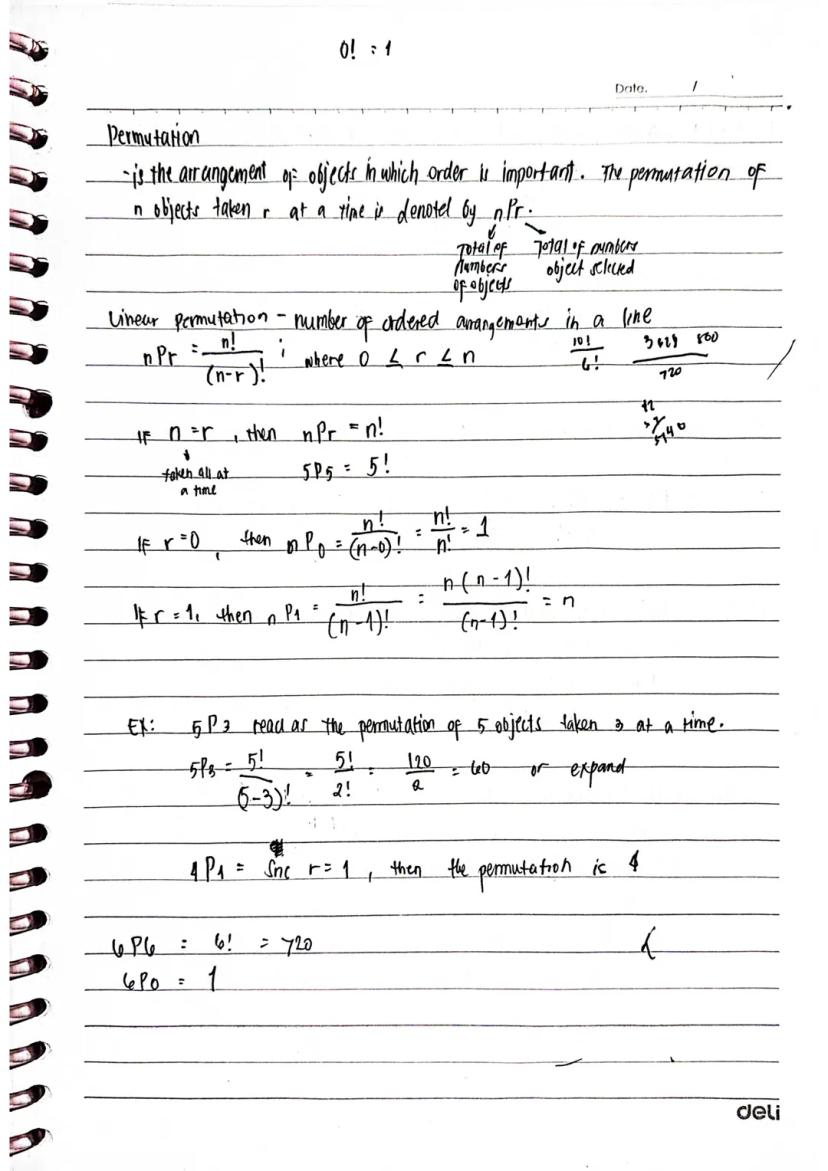 0! = 1
Date. /
Permutation
- is the arrangement of objects in which order is important. The permutation of
n objects taken r at a time is denoted by nPr.
Total of numbers of objects
Total of numbers object selected
Linear permutation - number of ordered arrangements in a line
nPr = n!/(n-r)! ; where 0 ≤ r ≤ n
10!/6! 3628 800/720
5740
If n = r, then nPr = n!
taken all at a time
5P5 = 5!
If r = 0, then nP0 = n!/(n-0)! = n!/n! = 1
If r = 1, then nP1 = n!/(n-1)! = n(n-1)!/(n-1)! = n
EX: 5P3 read as the permutation of 5 objects taken 3 at a time.
5P3 = 5!/(5-3)! = 5!/2! = 120/2 = 60 or expand
4P1 = Snc r = 1, then the permutation is 4
6P6 = 6! = 720
6P0 = 1
deli